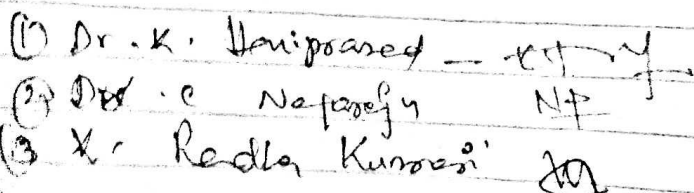 (1) Dr. K. Hariprased -
(2) Dr. C Nagaraju NP
(3 K. Radha Kumari